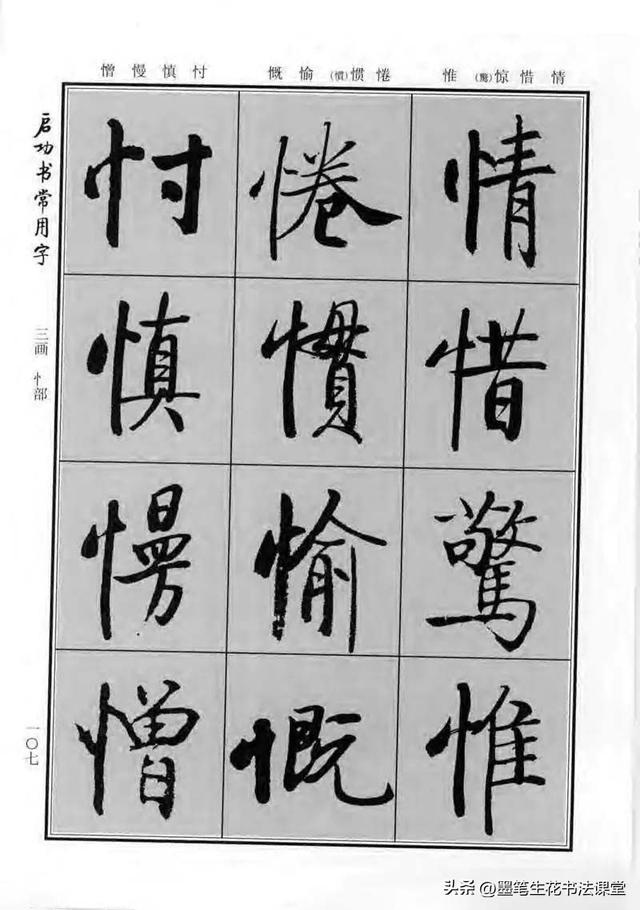 情惜惊(驚)惟
惓惯(慣)愉慨
忖慎慢憎
情惜驚惟
惓慣愉慨
忖慎慢憎
启功书常用字
三画 忄部
一〇七
头条 @墨笔生花书法课堂